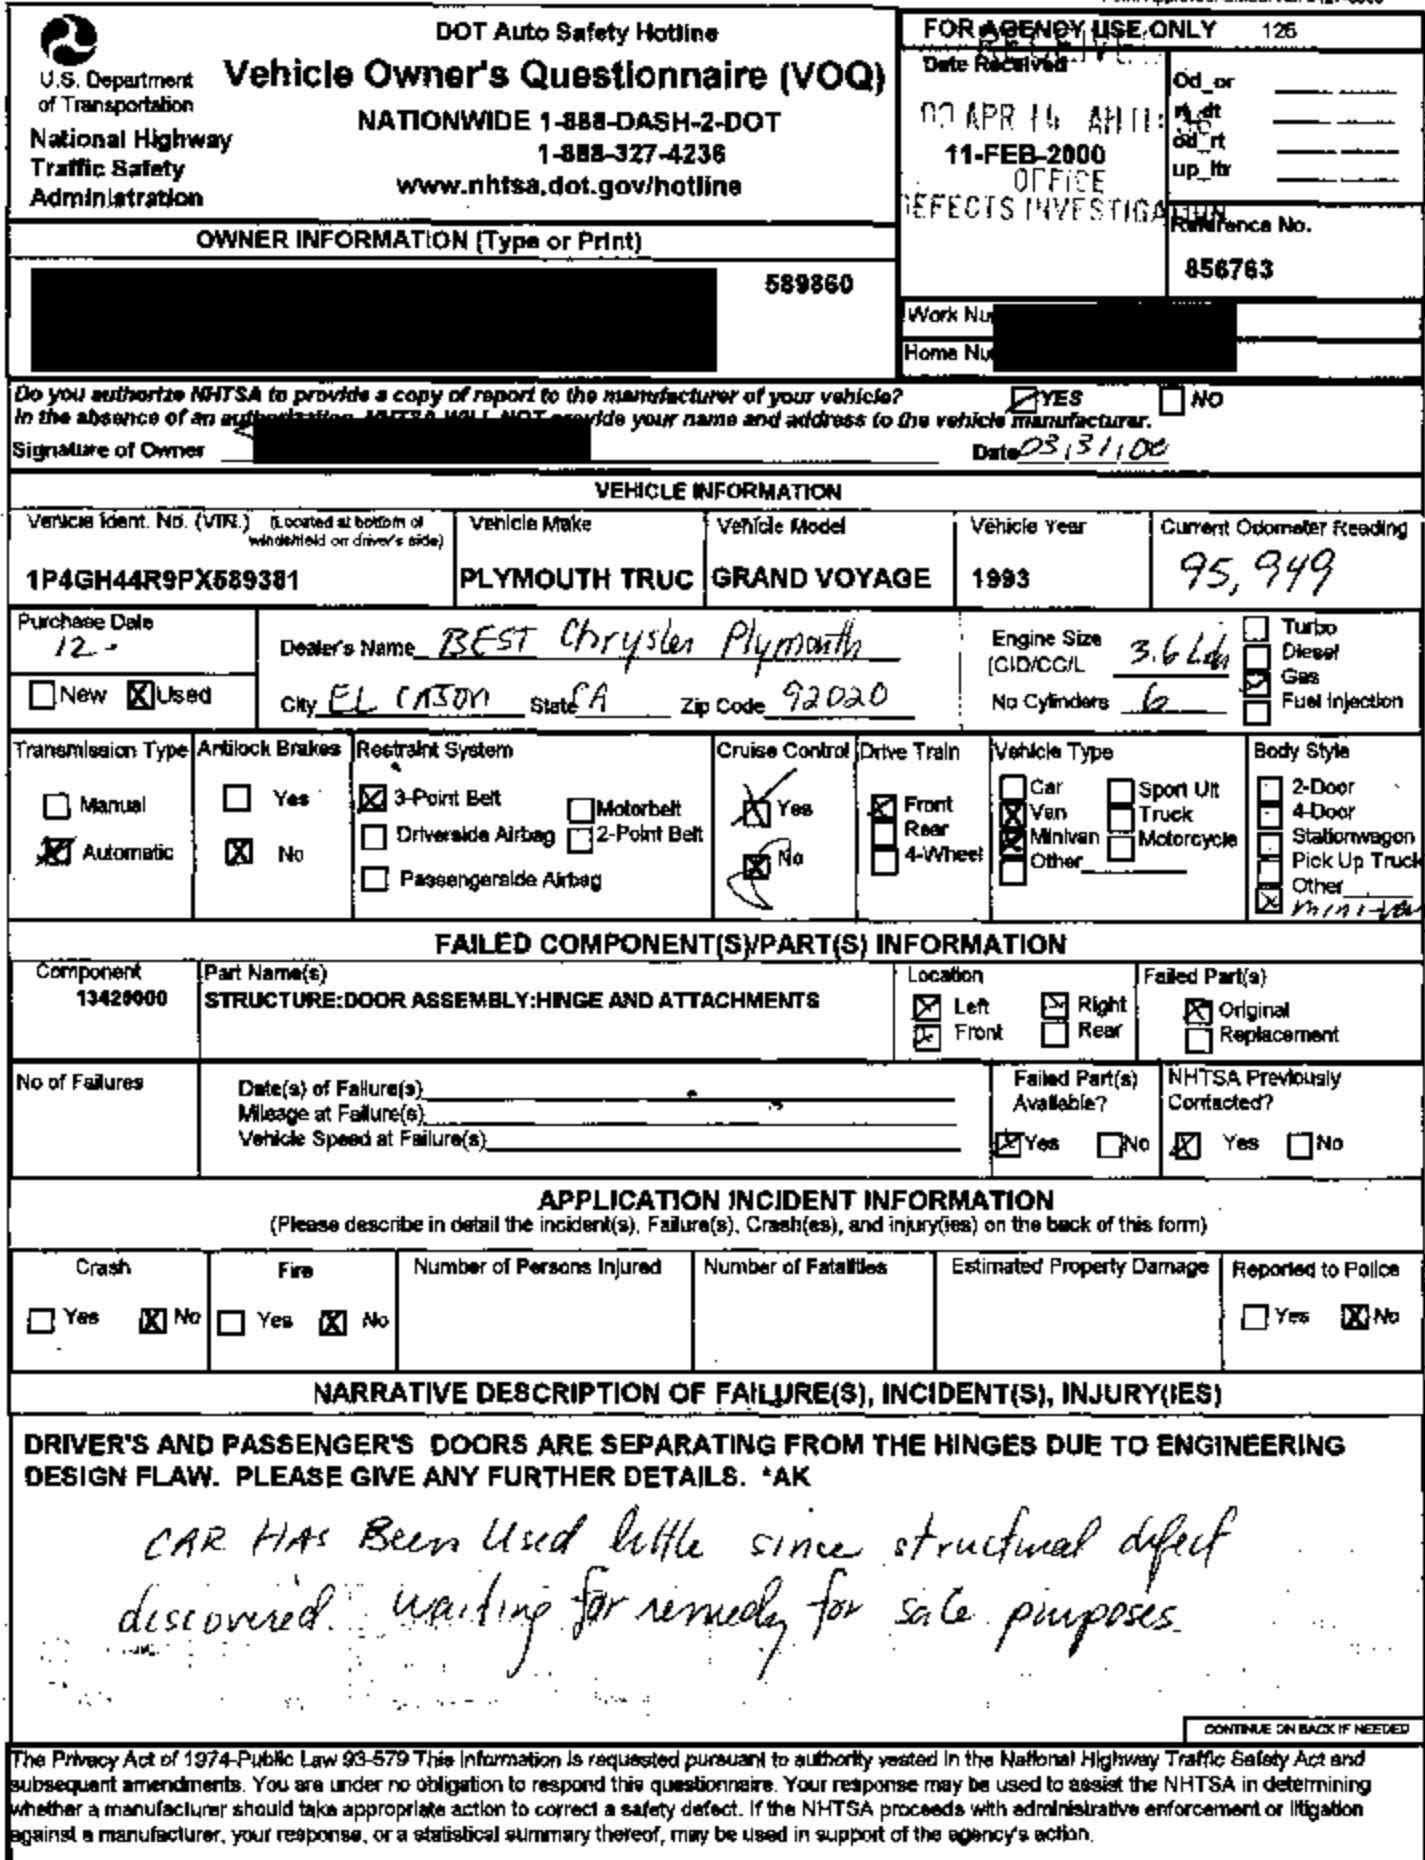 DOT Auto Safety Hotline
Vehicle Owner's Questionnaire (VOQ)
NATIONWIDE 1-888-DASH-2-DOT
1-888-327-4236
www.nhtsa.dot.gov/hotline
U.S. Department
of Transportation
National Highway
Traffic Safety
Administration
FOR AGENCY USE ONLY 126
Date Received
APR
11-FEB-2000
OFFICE
DEFECTS INVESTIGATION
Od_or
rt_dt
od_rt
up_ltr
Reference No.
856763
OWNER INFORMATION (Type or Print)
589860
Work Nu
Home Nu
Do you authorize NHTSA to provide a copy of report to the manufacturer of your vehicle? YES NO
In the absence of an authorization, NHTSA WILL NOT provide your name and address to the vehicle manufacturer.
Signature of Owner Date 03/31/00
VEHICLE INFORMATION
Vehicle Ident. No. (VIN.) (Located at bottom of windshield on driver's side)
1P4GH44R9PX589381
Vehicle Make
PLYMOUTH TRUC
Vehicle Model
GRAND VOYAGE
Vehicle Year
1993
Current Odometer Reading
95,949
Purchase Date
12-
New X Used
Dealer's Name BEST Chrysler Plymouth
City EL CAJON State CA Zip Code 92020
Engine Size
(CID/CC/L 3.6
No Cylinders 6
Turbo
Diesel
Gas
Fuel Injection
Transmission Type
Manual
Automatic
Antilock Brakes
Yes
X No
Restraint System
3-Point Belt
Driverside Airbag
Passengerside Airbag
Motorbelt
2-Point Belt
Cruise Control
Yes
No
Drive Train
Front
Rear
4-Wheel
Vehicle Type
Car
Van
Minivan
Other
Sport Ult
Truck
Motorcycle
Body Style
2-Door
4-Door
Stationwagon
Pick Up Truck
Other
mini-van
FAILED COMPONENT(S)/PART(S) INFORMATION
Component
13420000
Part Name(s)
STRUCTURE:DOOR ASSEMBLY:HINGE AND ATTACHMENTS
Location
Left Right
Front Rear
Failed Part(s)
Original
Replacement
No of Failures
Date(s) of Failure(s)
Mileage at Failure(s)
Vehicle Speed at Failure(s)
Failed Part(s)
Available?
Yes No
NHTSA Previously
Contacted?
Yes No
APPLICATION INCIDENT INFORMATION
(Please describe in detail the incident(s), Failure(s), Crash(es), and injury(ies) on the back of this form)
Crash
Yes X No
Fire
Yes X No
Number of Persons Injured
Number of Fatalities
Estimated Property Damage
Reported to Police
Yes X No
NARRATIVE DESCRIPTION OF FAILURE(S), INCIDENT(S), INJURY(IES)
DRIVER'S AND PASSENGER'S DOORS ARE SEPARATING FROM THE HINGES DUE TO ENGINEERING
DESIGN FLAW. PLEASE GIVE ANY FURTHER DETAILS. *AK
CAR HAS Been Used little since structural defect
discovered. waiting for remedy for sale purposes
CONTINUE ON BACK IF NEEDED
The Privacy Act of 1974-Public Law 93-579 This information is requested pursuant to authority vested in the National Highway Traffic Safety Act and
subsequent amendments. You are under no obligation to respond this questionnaire. Your response may be used to assist the NHTSA in determining
whether a manufacturer should take appropriate action to correct a safety defect. If the NHTSA proceeds with administrative enforcement or litigation
against a manufacturer, your response, or a statistical summary thereof, may be used in support of the agency's action.